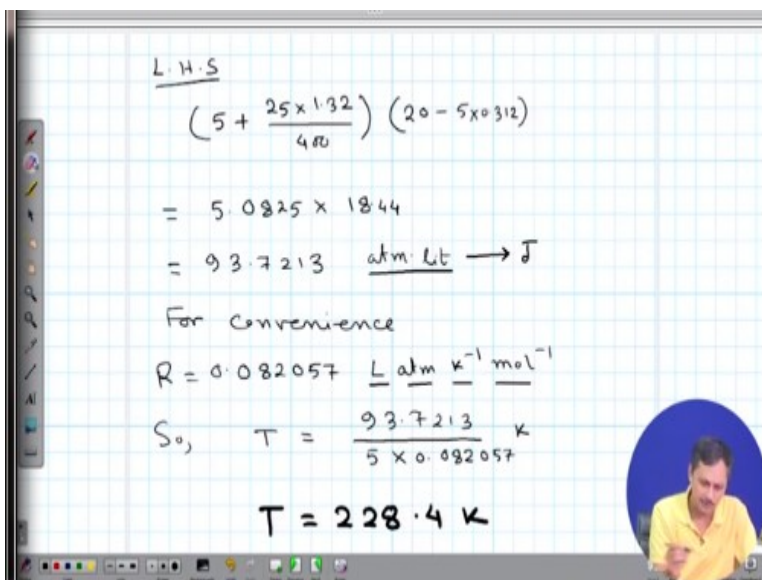 L.H.S
(5 + 25 x 1.32 / 400) (20 - 5x0.312)
= 5.0825 x 18.44
= 93.7213 atm. lit → J
For convenience
R = 0.082057 L atm K⁻¹ mol⁻¹
So, T = 93.7213 / 5 x 0.082057 K
T = 228.4 K